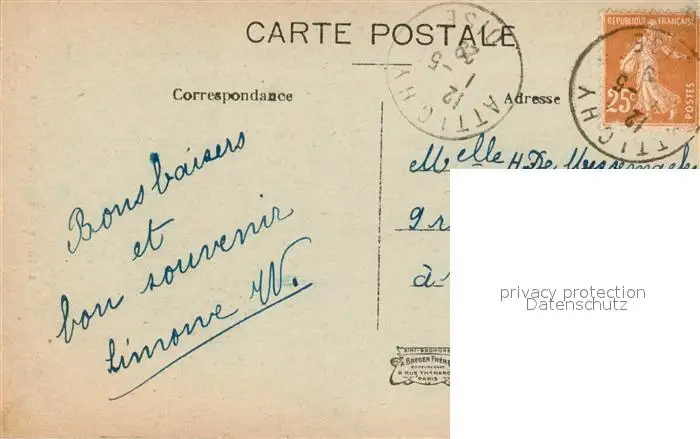 CARTE POSTALE
Correspondance
Adresse
ATTICHY
OISE
12
1 -5
28
REPUBLIQUE FRANÇAISE
25c
POSTES
ATTICHY
12
-5
Bons baisers
et
bon souvenir
Simone W.
Melle H. De
9 r
à
A BREGER FRÈRES
9 RUE THÉNARD
PARIS
privacy protection
Datenschutz